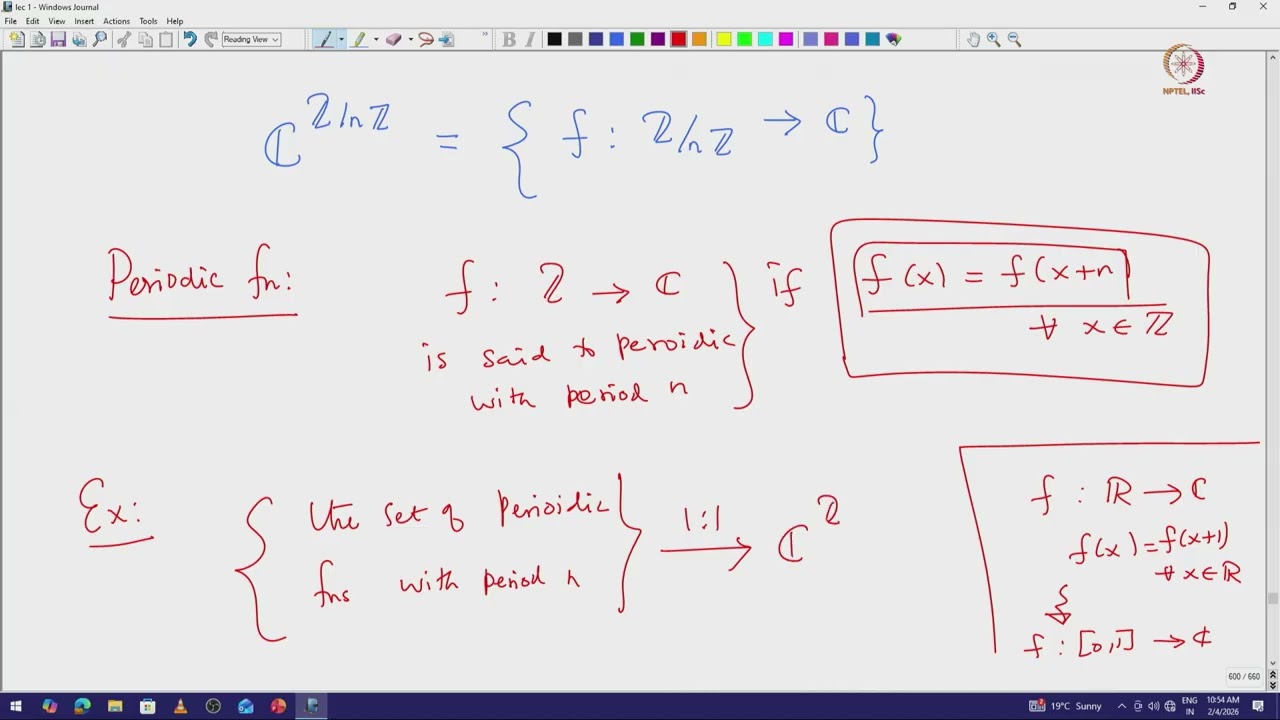 lec 1 - Windows Journal
File Edit View Insert Actions Tools Help
Reading View
NPTEL, IISc
ℂ^{ℤ/nℤ} = { f : ℤ/nℤ → ℂ }
Periodic fn: f : ℤ → ℂ } if f(x) = f(x+n)
∀ x ∈ ℤ
is said to peroidic
with period n
Ex: { the set of perioidic } 1:1 → ℂ^ℤ
fns with period n
f : ℝ → ℂ
f(x) = f(x+1)
∀ x ∈ ℝ
f : [0,1] → ℂ
600 / 660
19°C Sunny
ENG
IN
10:54 AM
2/4/2026